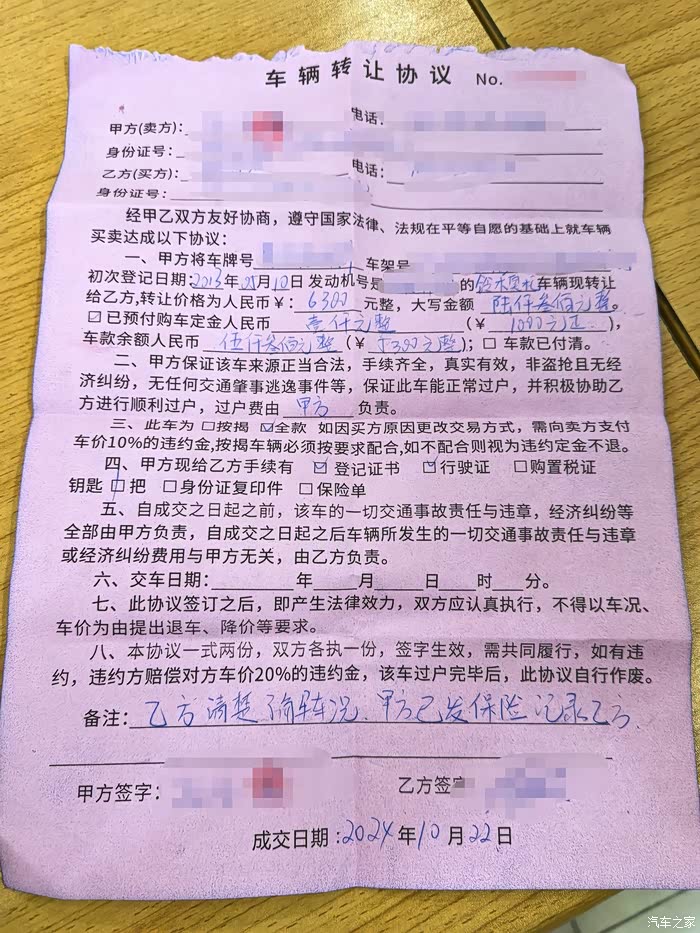 车辆转让协议 No.
甲方(卖方)： 电话：
身份证号：
乙方(买方)： 电话：
身份证号：
经甲乙双方友好协商，遵守国家法律、法规在平等自愿的基础上就车辆
买卖达成以下协议：
一、甲方将车牌号 车架号
初次登记日期：2013年01月10日发动机号是 的铃木奥拓车辆现转让
给乙方,转让价格为人民币￥：6300元整，大写金额 陆仟叁佰元整。
☑已预付购车定金人民币 壹仟元整 （￥ 1000元正 ），
车款余额人民币 伍仟叁佰元整（￥5300元整）；□ 车款已付清。
二、甲方保证该车来源正当合法，手续齐全，真实有效，非盗抢且无经
济纠纷，无任何交通肇事逃逸事件等，保证此车能正常过户，并积极协助乙
方进行顺利过户，过户费由 甲方 负责。
三、此车为 □按揭 ☑全款 如因买方原因更改交易方式，需向卖方支付
车价10%的违约金,按揭车辆必须按要求配合,如不配合则视为违约定金不退。
四、甲方现给乙方手续有 ☑登记证书 ☑行驶证 □购置税证
钥匙 把 □身份证复印件 □保险单
五、自成交之日起之前，该车的一切交通事故责任与违章，经济纠纷等
全部由甲方负责，自成交之日起之后车辆所发生的一切交通事故责任与违章
或经济纠纷费用与甲方无关，由乙方负责。
六、交车日期：年 月 日 时 分。
七、此协议签订之后，即产生法律效力，双方应认真执行，不得以车况、
车价为由提出退车、降价等要求。
八、本协议一式两份，双方各执一份，签字生效，需共同履行，如有违
约，违约方赔偿对方车价20%的违约金，该车过户完毕后，此协议自行作废。
备注：乙方清楚了解车况、甲方已发保险记录乙方
甲方签字： 乙方签字
成交日期：2024年10月22日
汽车之家